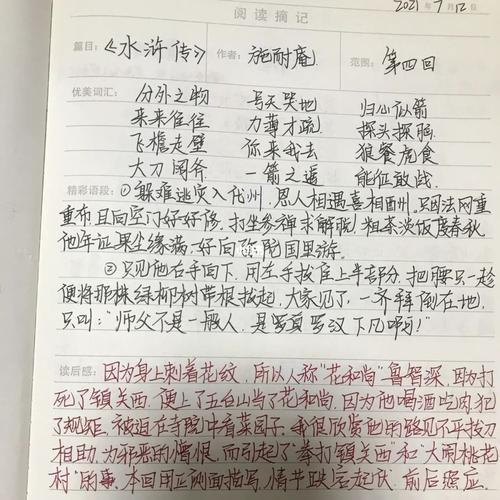 2021年7月12日
阅读摘记
篇目：《水浒传》 作者：施耐庵 范围：第四回
优美词汇： 分外之物 号天哭地 归心似箭
来来往往 力薄才疏 探头探脑
飞檐走壁 你来我去 狼餐虎食
大刀阔斧 一箭之遥 能征敢战
精彩语段：①躲难逃灾入代州，恩人相遇喜相酬。只因法网重
重布，且向空门好好修。打坐参禅求解脱，粗茶淡饭度春秋。
他年证果尘缘满，好向弥陀国里游。
②只见他右手向下，用左手拔住上半部分，把腰只一趁
便将那株绿柳树带根拔起，大家见了，一齐拜倒在地，
只叫：“师父不是一般人，是罗真罗汉下凡啊！”
读后感：因为身上刺着花纹，所以人称“花和尚”鲁智深，因为打
死了镇关西，便上了五台山当了花和尚，因为他喝酒吃肉犯
了规矩，被迫在寺院中看菜园子，我很欣赏他的路见不平拔刀
相助，为邪恶的憎恨，而引起了“拳打镇关西”和“大闹桃花
村”的事，本回用正侧面描写，情节跌宕起伏，前后照应。